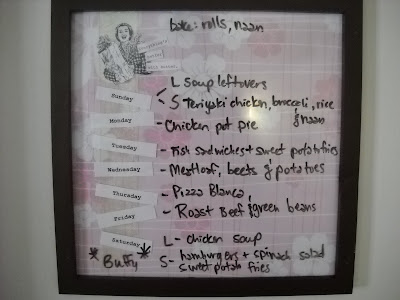 bake: rolls, naan
L soup leftovers
Sunday < S Teriyaki chicken, broccoli, rice
& naan
Monday - Chicken pot pie
Tuesday - Fish sandwiches + sweet potato fries
Wednesday - Meatloaf, beets & potatoes
Thursday - Pizza Blanca,
Friday - Roast Beef & green beans
Saturday L- chicken soup
*Buffy* S- hamburgers + spinach salad
sweet potato fries